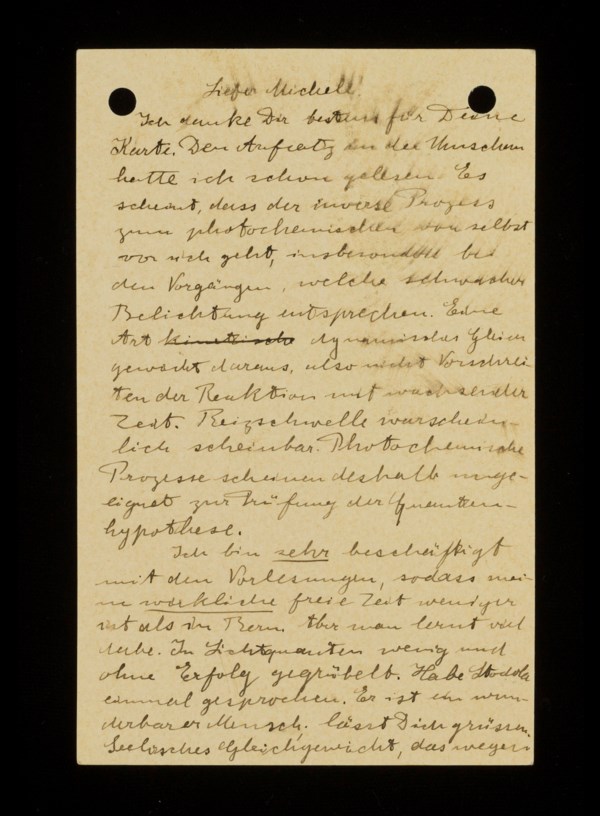 Lieber Michele!
Ich danke Dir bestens für Deine
Karte. Den Aufsatz in der Umschau
hatte ich schon gelesen. Es
scheint, dass der inverse Prozess
zum photochemischen von selbst
vor sich geht, insbesondere bei
den Vorgängen, welche schwacher
Belichtung entsprechen. Eine
Art kinetische dynamisches Gleich
gewicht daraus, also nicht Vorschrei-
ten der Reaktion mit wachsender
Zeit. Reizschwelle warschein-
lich scheinbar. Photochemische
Prozesse scheinen deshalb unge-
eignet zur Prüfung der Quanten-
hypothese.
Ich bin sehr beschäftigt
mit den Vorlesungen, sodass mei-
ne wirkliche freie Zeit weniger
ist als in Bern. Aber man lernt viel
dabe. In Lichtquanten wenig und
ohne Erfolg gegrübelt. Habe Stodola
einmal gesprochen. Er ist ein wun-
derbarer Mensch, lässt Dich grüssen.
Seelisches Gleichgewicht, das wegen